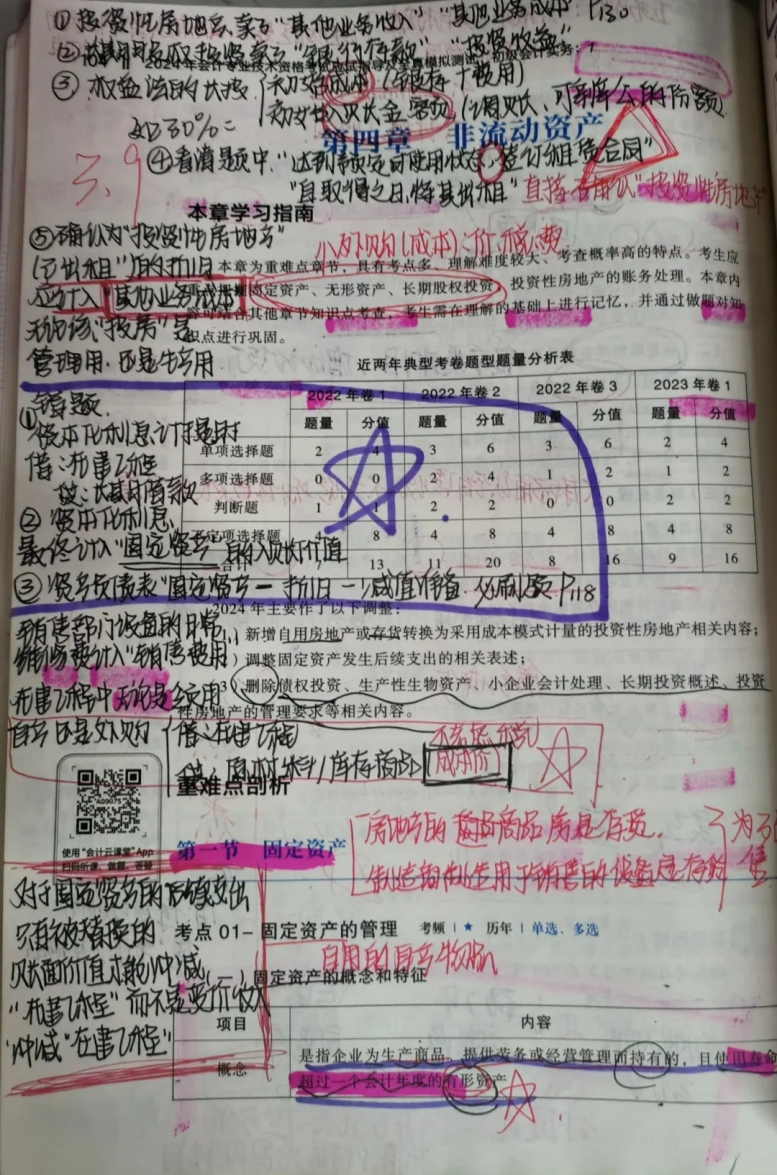 ① 投资性房地产卖了"其他业务收入" "其他业务成本" P130
② 长期股权投资卖了"银行存款" "投资收益"
2024年会计专业技术资格考试应试指导及全真模拟测试 初级会计实务
③ 权益法的长投 初始成本(银存+费用)
初始入账金额(调账、可辨净公的份额
如30%=
第四章 非流动资产
3.9
④看清题中"达到预定可使用状态"签订租赁合同"
"自取得之日,将其出租"直接确认"投资性房地产
本章学习指南
⑤确认为"投资性房地产"
外购(成本):价税费
(已出租")的折旧
本章为重难点章节,具有考点多、理解难度较大、考查概率高的特点。考生应
应计入"其他业务成本"
固定资产、无形资产、长期股权投资、投资性房地产的账务处理。本章内
无论该"投房"是
结合其他章节知识点考查,考生需在理解的基础上进行记忆,并通过做题对知
识点进行巩固。
管理用.还是生产用
近两年典型考卷题型题量分析表
2022年卷1 2022年卷2 2022年卷3 2023年卷1
题量 分值 题量 分值 题量 分值 题量 分值
单项选择题 2 4 3 6 3 6 2 4
多项选择题 0 0 2 4 1 2 1 2
判断题 1 1 2 2 0 0 2 2
不定项选择题 4 8 4 8 4 8 4 8
合计 7 13 11 20 8 16 9 16
错题.
① 资本化利息计提时
借:在建工程
贷:长期借款
② 资本化利息、
最终计入"固定资产"的入账价值
③ 资产负债表"固定资产-折旧-减值准备.必刷题P118
2024年主要作了以下调整:
新增自用房地产或存货转换为采用成本模式计量的投资性房地产相关内容;
调整固定资产发生后续支出的相关表述;
删除债权投资、生产性生物资产、小企业会计处理、长期投资概述、投资
性房地产的管理要求等相关内容。
销售部门设备的日常
维修费计入"销售费用"
在建工程中无论是领用
自产还是外购 借:在建工程
贷:原材料/库存商品 成本价
重难点剖析
使用"会计云课堂"App
扫码听课、做题、答疑
第一节 固定资产
房地产的商品房是存货.
制造用于销售的设备是存货
为了
售
对于固定资产的后续支出
只有被替换的
账面价值才能冲减
"在建工程"而不是变价收入
冲减"在建工程"
考点 01- 固定资产的管理 考频|★ 历年|单选、多选
自用的自产物品
(一)固定资产的概念和特征
项目 内容
概念 是指企业为生产商品、提供劳务或经营管理而持有的,且使用寿命
超过一个会计年度的有形资产